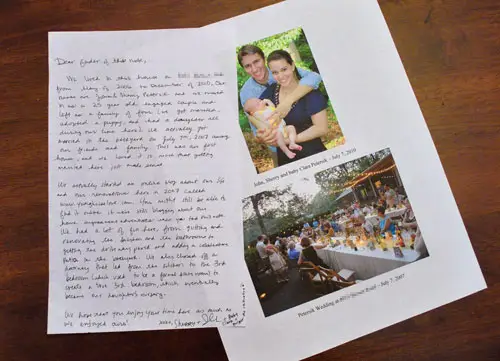 Dear finder of this note,
We lived in this house on
from May of 2006 to December of 2010. Our
names are John & Sherry Petersik and we moved
in as a 25 year old engaged couple and
left as a family of four (we got married,
adopted a puppy, and had a daughter all
during our time here). We actually got
married in the backyard on July 7th, 2007 among
our friends and family. This was our first
house, and we loved it so more than getting
married here just made sense.
We actually started an online blog about our life
and our renovations here in 2007 called
younghouselove.com. You might still be able to
find it online if we're still blogging about our
home improvement adventures when you find this note.
We had a lot of fun here, from gutting and
renovating the kitchen and the bathrooms to
adding a celebration
patio in the backyard. We also closed off a
doorway that led from the kitchen to the 3rd
bedroom (which used to be a formal dining room) to
create a true 3rd bedroom, which eventually
became our daughter's nursery.
We hope that you enjoy your time here as much as
we enjoyed ours!
John, Sherry and Baby Clara Petersik - July 7, 2010
Petersik Wedding at - July 7, 2007